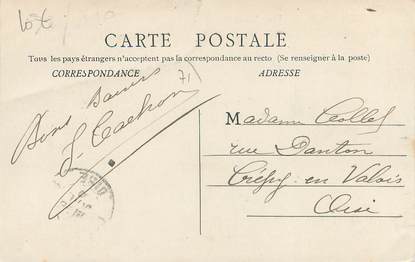 CARTE POSTALE
Tous les pays étrangers n'acceptent pas la correspondance au recto (Se renseigner à la poste)
CORRESPONDANCE
71
ADRESSE
Bons baisers
Madame Collet
rue Danton
Crépy en Valois
Oise